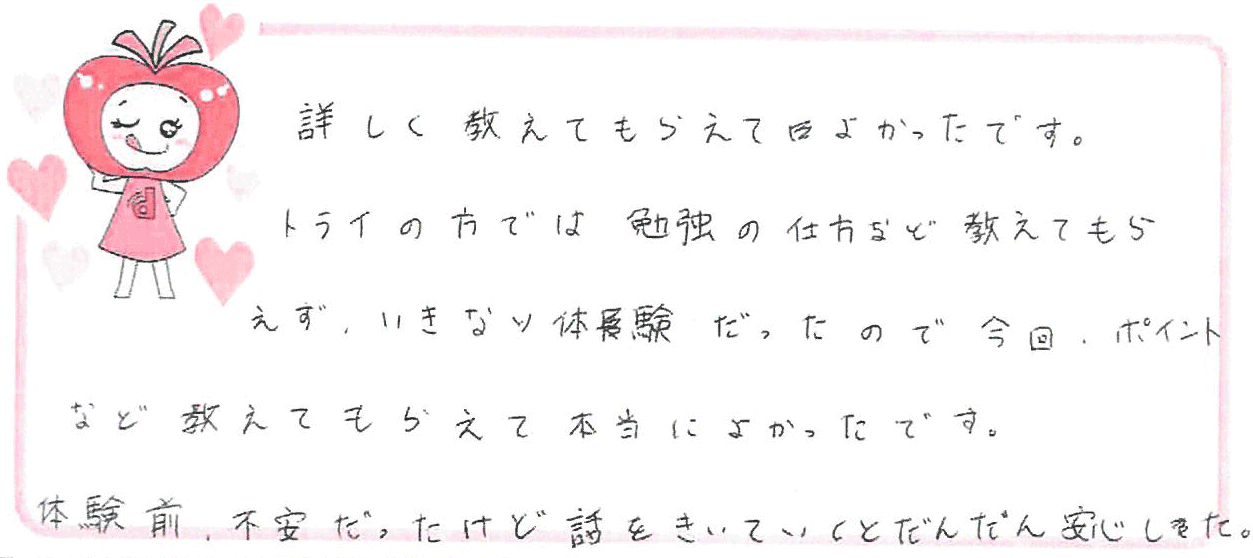 詳しく教えてもらえてよかったです。
トライの方では勉強の仕方など教えてもら
えず、いきなり体験だったので今回、ポイント
など教えてもらえて本当によかったです。
体験前、不安だったけど話をきいていくとだんだん安心しました。